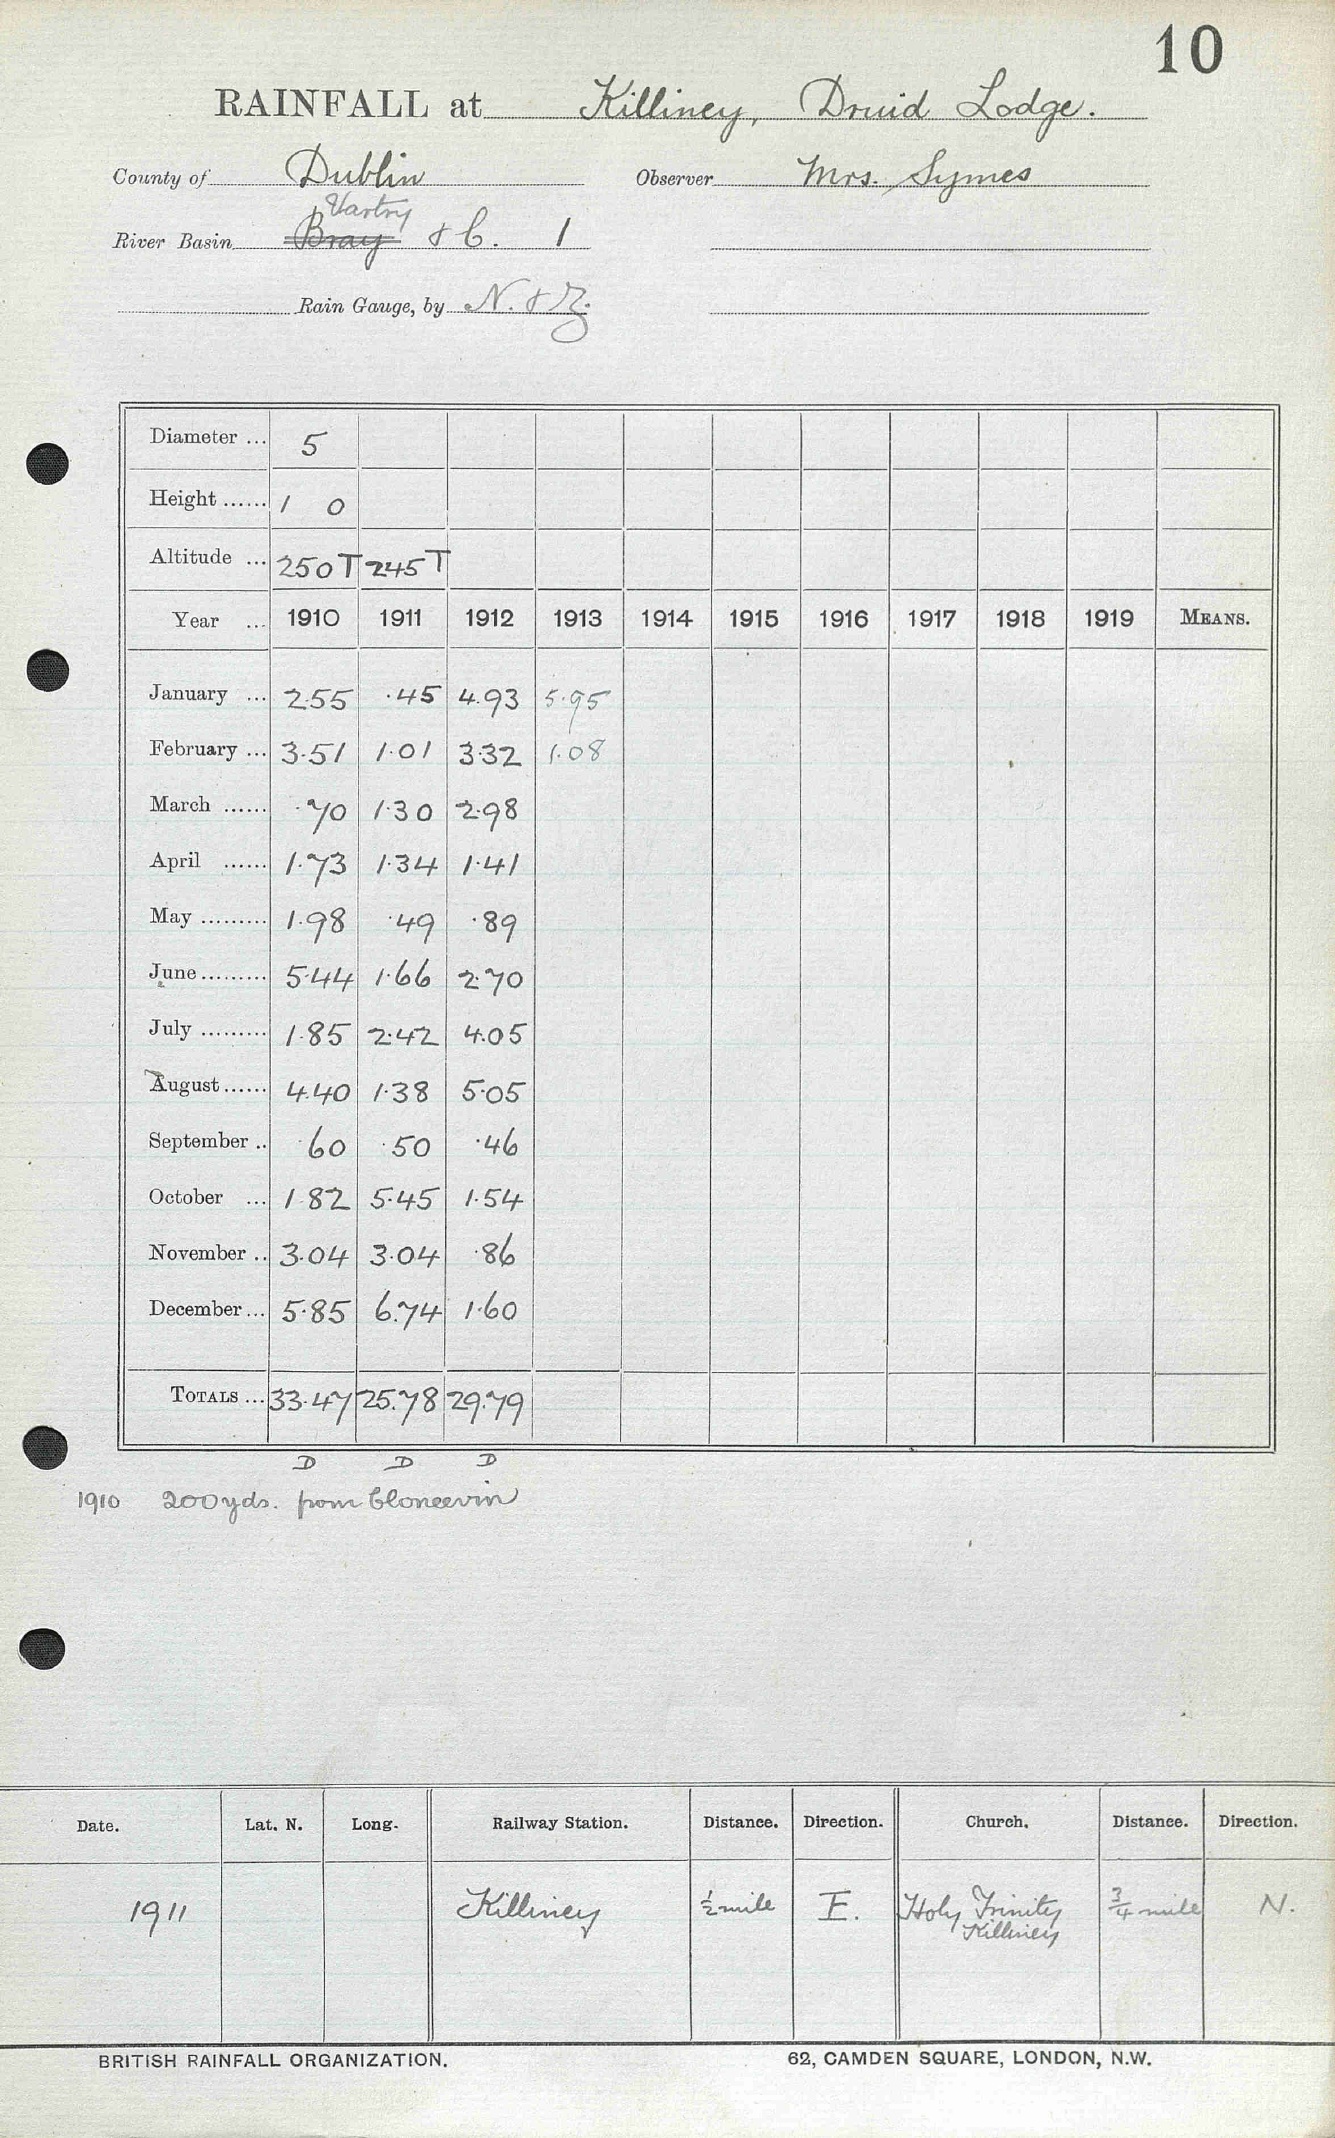 10
RAINFALL at Killiney, Druid Lodge.
County of Dublin Observer Mrs. Symes
Vartry
River Basin Bray & C. 1
Rain Gauge, by N. & Z.
Diameter ... 5
Height ...... 1 0
Altitude ... 250 T 245 T
Year ... 1910 1911 1912 1913 1914 1915 1916 1917 1918 1919 MEANS.
January ... 2.55 .45 4.93 5.95
February ... 3.51 1.01 3.32 1.08
March ...... .70 1.30 2.98
April ...... 1.73 1.34 1.41
May ......... 1.98 .49 .89
June ......... 5.44 1.66 2.70
July ......... 1.85 2.42 4.05
August ...... 4.40 1.38 5.05
September .. .60 .50 .46
October ... 1.82 5.45 1.54
November .. 3.04 3.04 .86
December ... 5.85 6.74 1.60
TOTALS ... 33.47 25.78 29.79
D D D
1910 200 yds. from Cloneevin
Date. Lat. N. Long. Railway Station. Distance. Direction. Church. Distance. Direction.
1911 Killiney ½ mile E. Holy Trinity ¾ mile N.
Killiney
BRITISH RAINFALL ORGANIZATION. 62, CAMDEN SQUARE, LONDON, N.W.